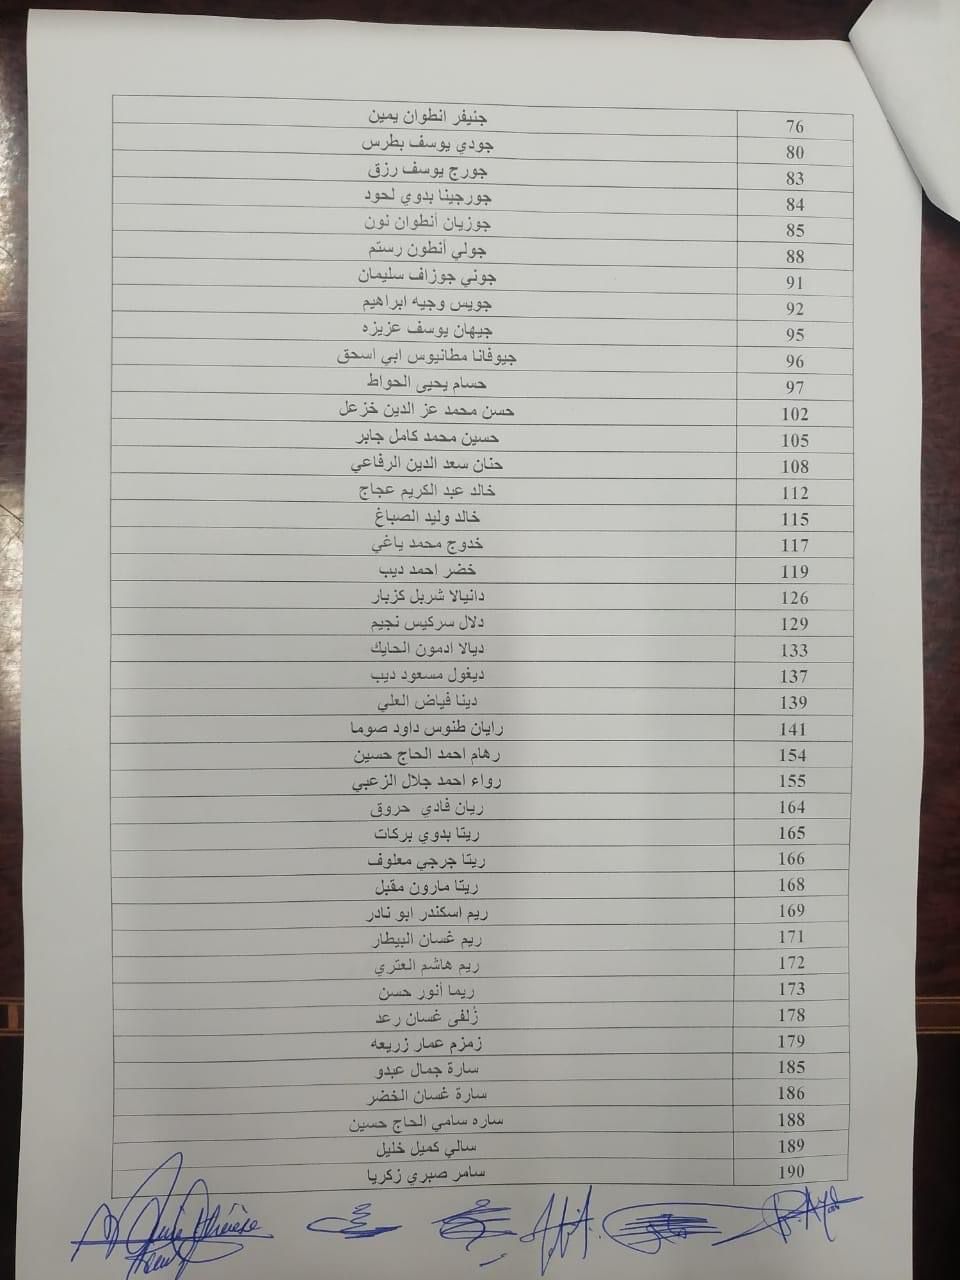 76 جنيفر انطوان يمين
80 جودي يوسف بطرس
83 جورج يوسف رزق
84 جورجينا بدوي لحود
85 جوزيان أنطوان نون
88 جولي أنطون رستم
91 جوني جوزاف سليمان
92 جويس وجيه ابراهيم
95 جيهان يوسف عزيزه
96 جيوفانا مطانيوس ابي اسحق
97 حسام يحيى الحواط
102 حسن محمد عز الدين خزعل
105 حسين محمد كامل جابر
108 حنان سعد الدين الرفاعي
112 خالد عبد الكريم عجاج
115 خالد وليد الصباغ
117 خدوج محمد ياغي
119 خضر احمد ديب
126 دانيالا شربل كزبار
129 دلال سركيس نجيم
133 ديالا ادمون الحايك
137 ديغول مسعود ديب
139 دينا فياض العلي
141 رايان طنوس داود صوما
154 رهام احمد الحاج حسين
155 رواء احمد جلال الزعبي
164 ريان فادي حروق
165 ريتا بدوي بركات
166 ريتا جرجي معلوف
168 ريتا مارون مقبل
169 ريم اسكندر ابو نادر
171 ريم غسان البيطار
172 ريم هاشم العتري
173 ريما أنور حسن
178 زُلفى غسان رعد
179 زمزم عمار زريعه
185 سارة جمال عبدو
186 سارة غسان الخضر
188 ساره سامي الحاج حسين
189 سالي كميل خليل
190 سامر صبري زكريا